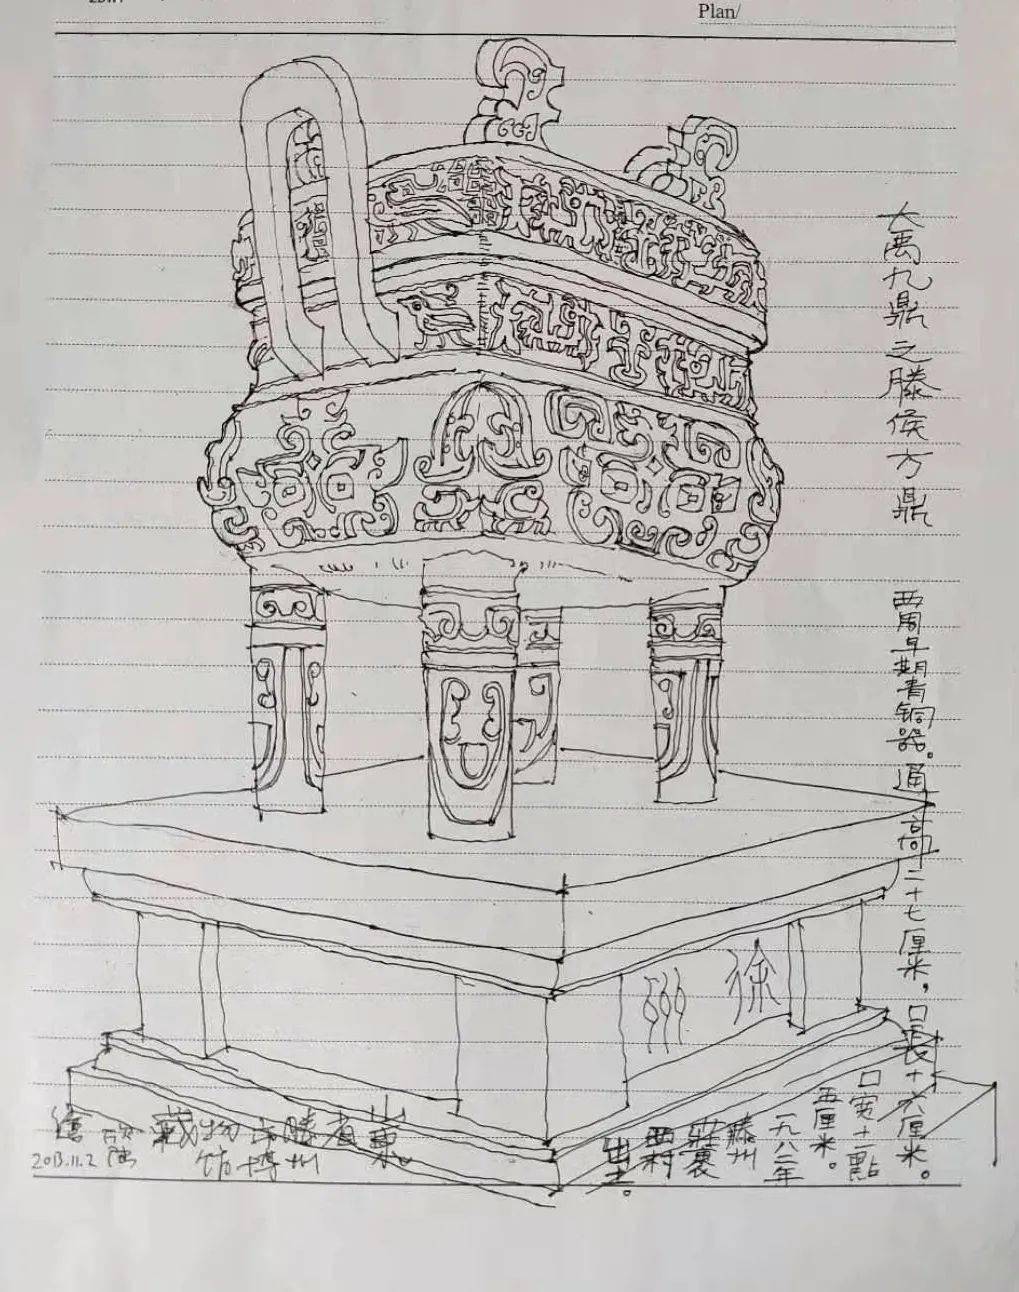 Plan/
大禹九鼎之滕侯方鼎
西周早期青铜器。通高二十七厘米,口長十六厘米。
口宽十一點
五厘米。
一九八二年
滕州
莊裏
西村
出土。
徐州
山東
省
滕州
市博
物馆
藏
2013.11.2